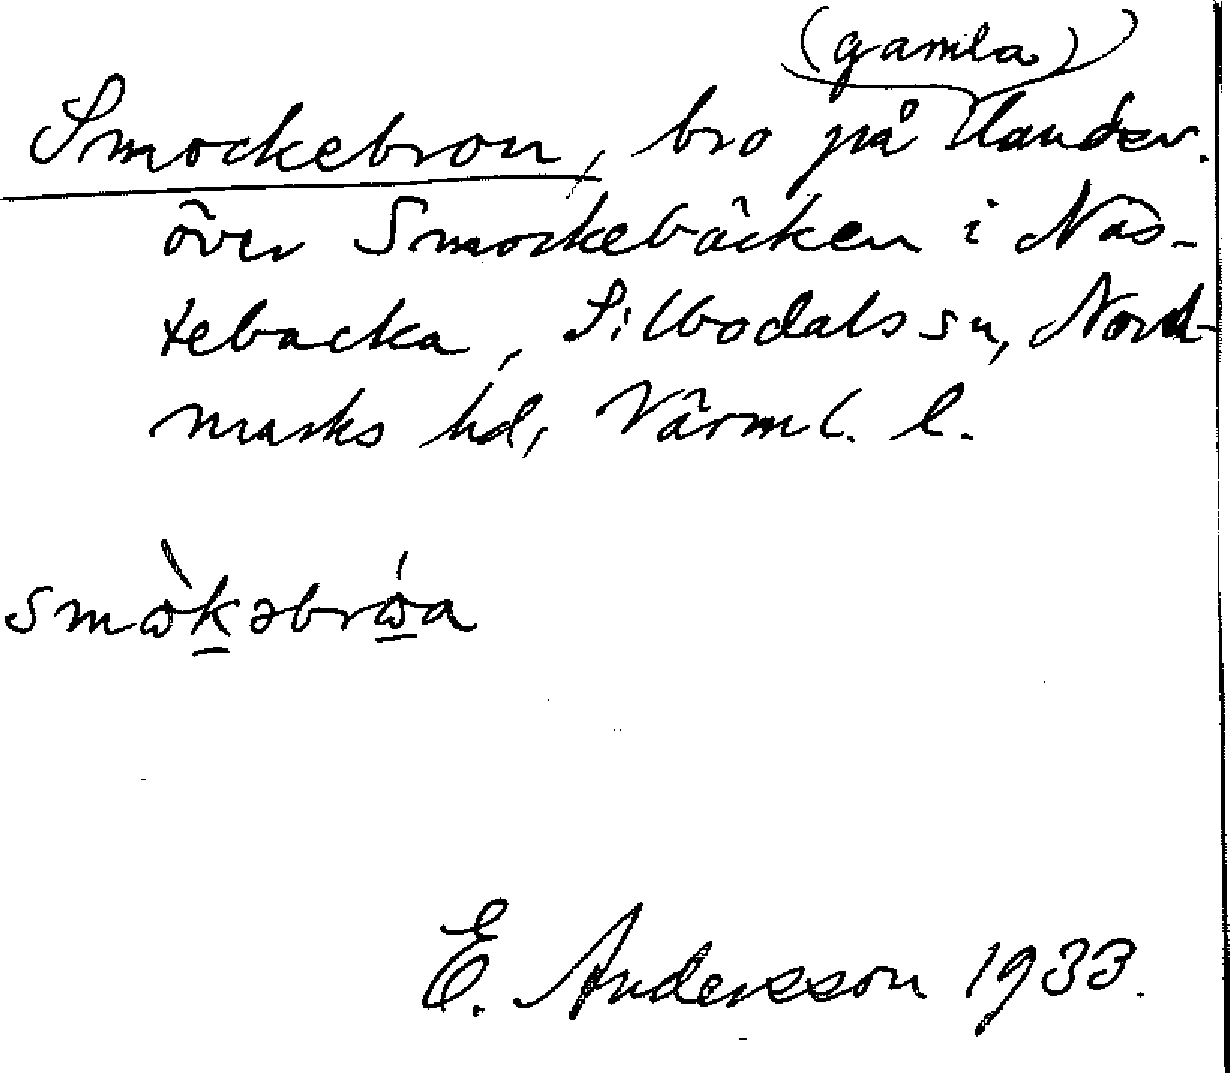 (gamla)
Smockebron, bro på landsv.
över Smockebäcken i Näs-
tebacka, Silbodals sn, Nord-
marks hd, Värml. l.
smɷ̀kəbrɷ́a
E. Andersson 1933.